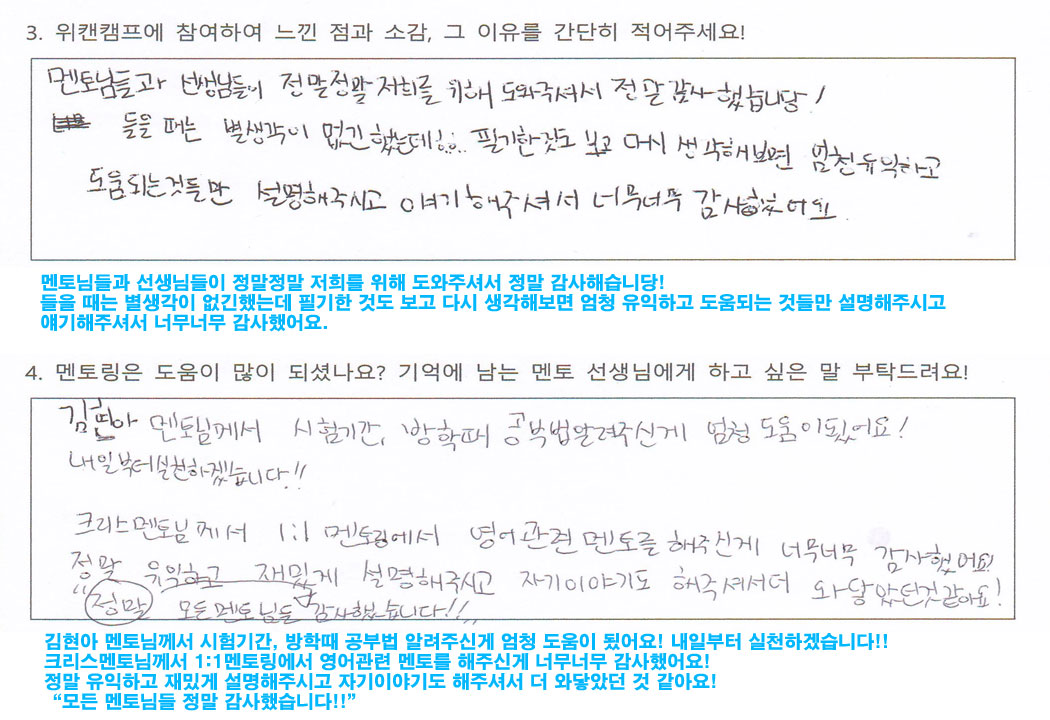 3. 위캔캠프에 참여하여 느낀 점과 소감, 그 이유를 간단히 적어주세요!
멘토님들과 선생님들이 정말정말 저희를 위해 도와주셔서 정말 감사했습니당!
들을 때는 별생각이 없긴했는데!... 필기한것도 보고 다시 생각해보면 엄청유익하고
도움되는것들만 설명해주시고 얘기해주셔서 너무너무 감사했어요
멘토님들과 선생님들이 정말정말 저희를 위해 도와주셔서 정말 감사해습니당!
들을 때는 별생각이 없긴했는데 필기한 것도 보고 다시 생각해보면 엄청 유익하고 도움되는 것들만 설명해주시고
얘기해주셔서 너무너무 감사했어요.
4. 멘토링은 도움이 많이 되셨나요? 기억에 남는 멘토 선생님에게 하고 싶은 말 부탁드려요!
김현아 멘토님께서 시험기간, 방학때 공부법알려주신게 엄청 도움이됬어요!
내일부터실천하겠습니다!!
크리스멘토님께서 1:1 멘토링에서 영어관련멘토를 해주신게 너무너무 감사했어요!
정말 유익하고 재밌게 설명해주시고 자기이야기도 해주셔서더 와닿았던것같아요!
"정말 모든멘토님들 감사했습니다!!"
김현아 멘토님께서 시험기간, 방학때 공부법 알려주신게 엄청 도움이 됬어요! 내일부터 실천하겠습니다!!
크리스멘토님께서 1:1멘토링에서 영어관련 멘토를 해주신게 너무너무 감사했어요!
정말 유익하고 재밌게 설명해주시고 자기이야기도 해주셔서 더 와닿았던 것 같아요!
“모든 멘토님들 정말 감사했습니다!!”